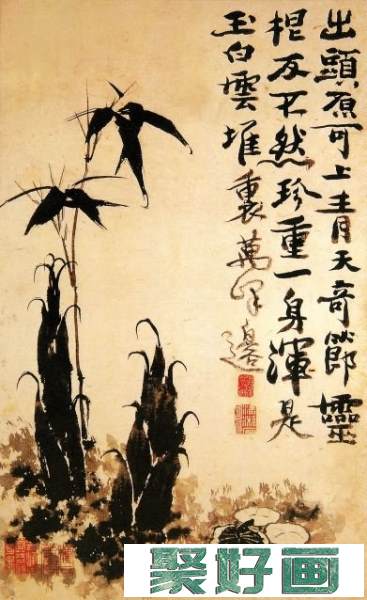 出頭原可上青天奇節靈
根反不然珍重一身渾是
玉白雲堆裏萬峰邊
聚好画